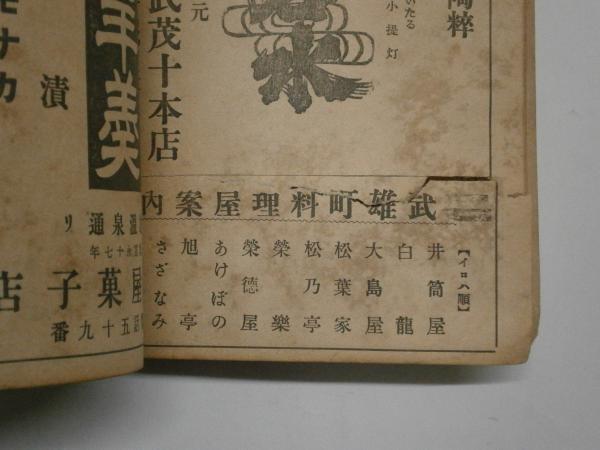 陶粋
いたる
小提灯
水
元
武茂十本店
羊羹
漬
モナカ
武雄町料理屋案内
【イロハ順】
井筒屋
白龍
大島屋
松葉家
松乃亭
榮樂
榮徳屋
あけぼの
旭亭
さざなみ
温泉通リ
屋菓子店
五十九番